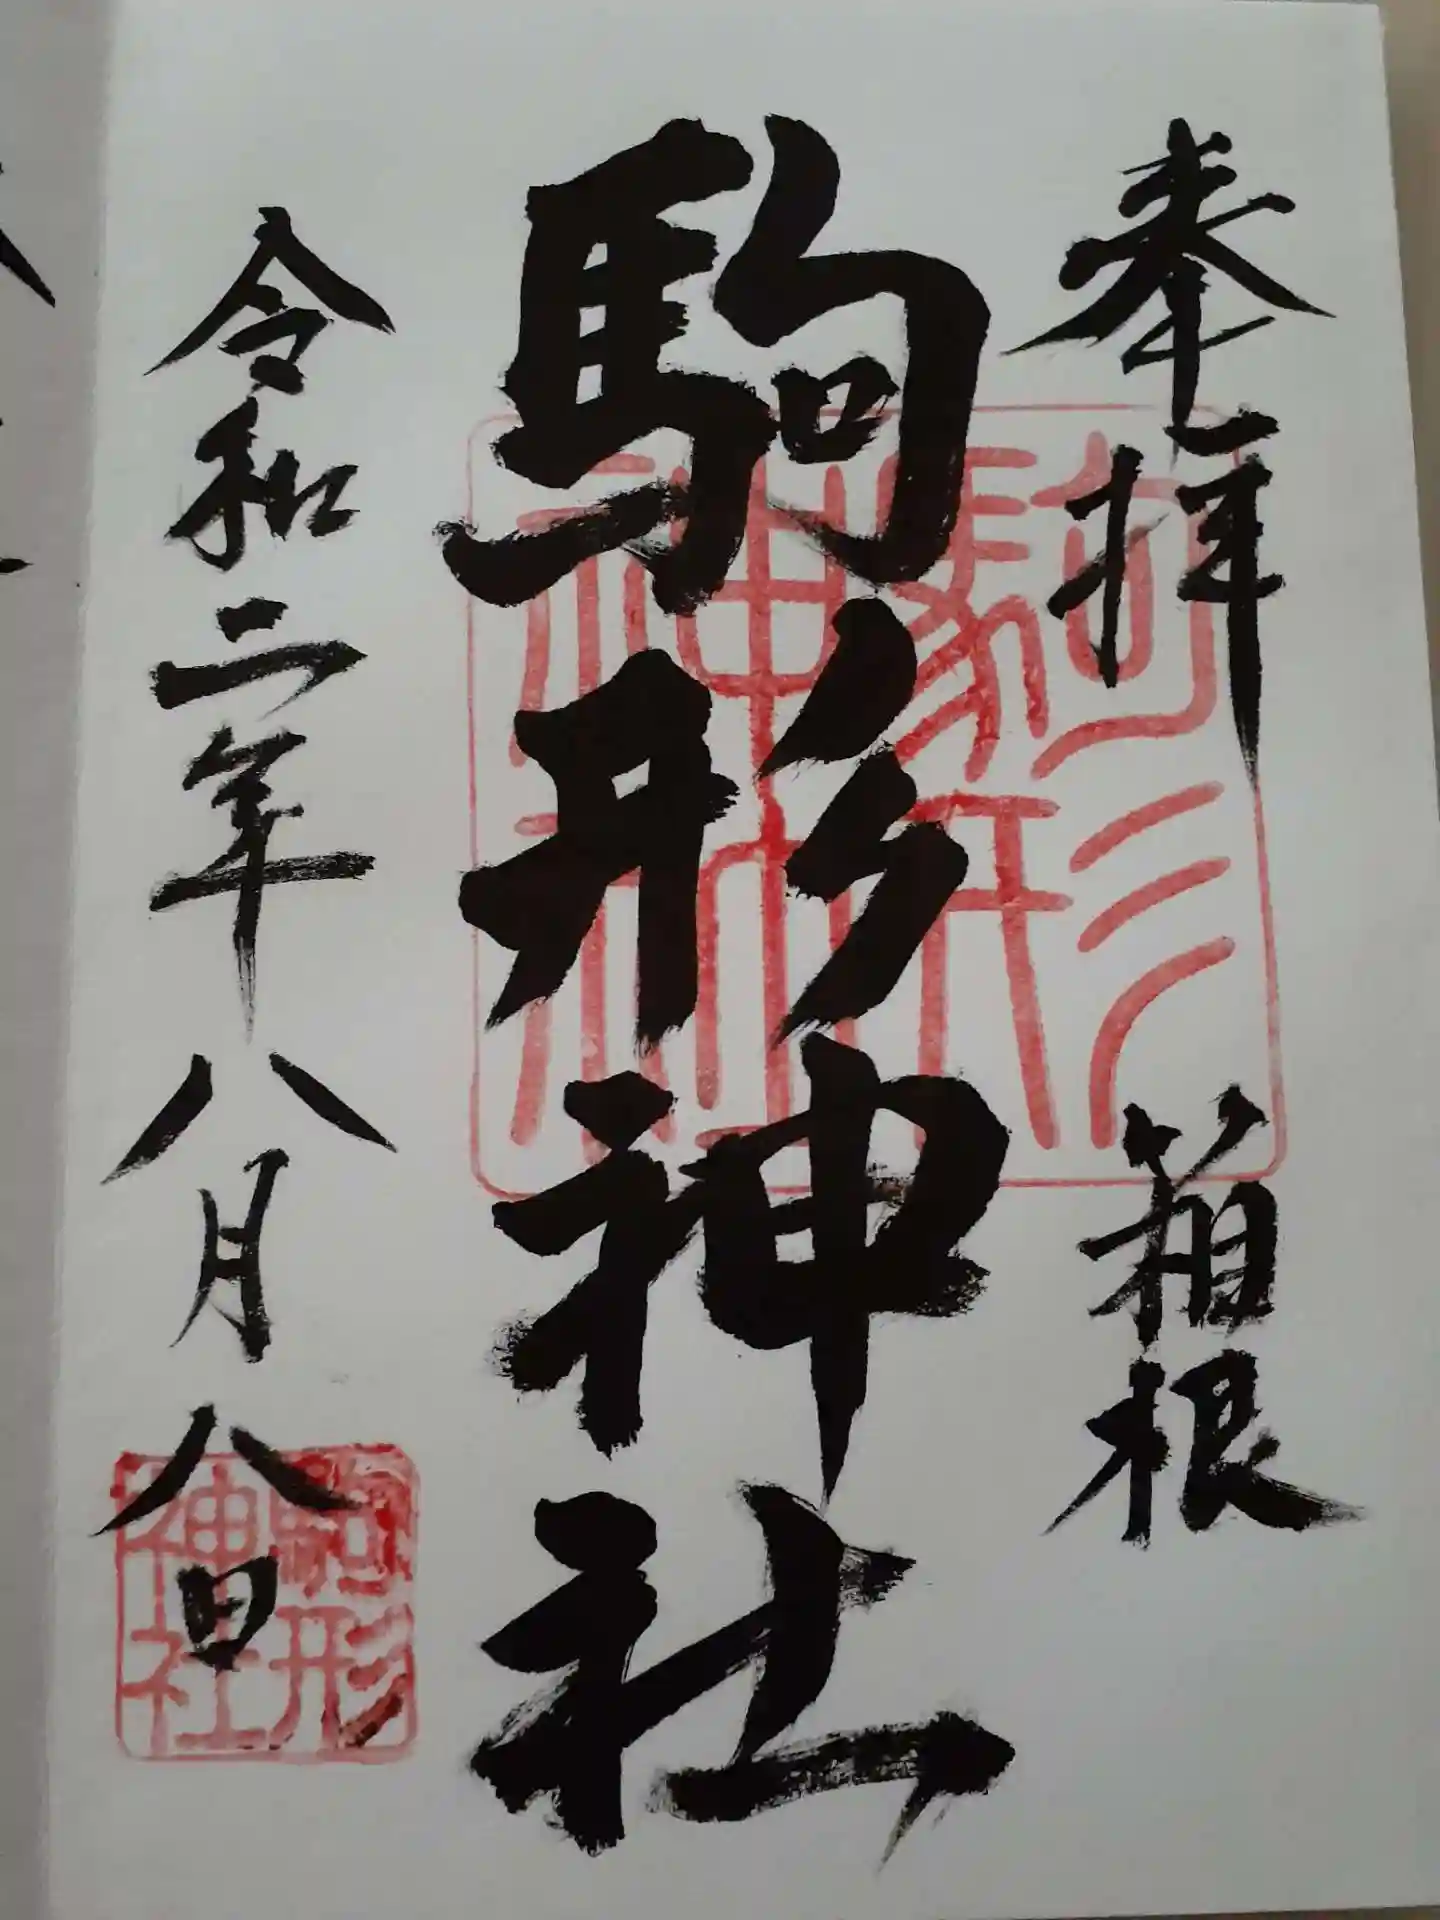 奉拝 箱根
駒形神社
令和二年八月八日
駒形
神社
駒形
神社